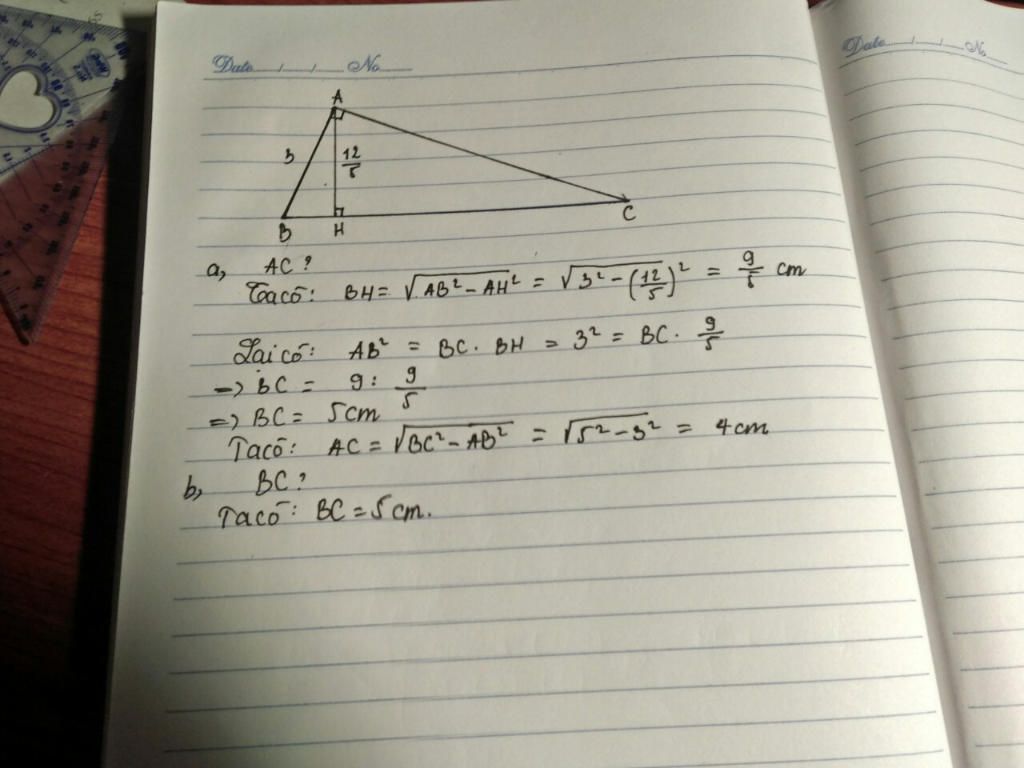 Date / / No
Date / / No
A
3
12/5
B H C
a, AC ?
Ta có: BH = √(AB² - AH²) = √(3² - (12/5)²) = 9/5 cm
Lại có: AB² = BC . BH = 3² = BC . 9/5
=> BC = 9 : 9/5
=> BC = 5cm
Ta có: AC = √(BC² - AB²) = √(5² - 3²) = 4cm
b, BC ?
Ta có: BC = 5cm.